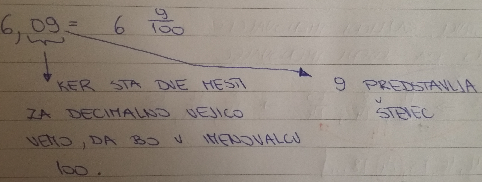 6,09 = 6 9/100
KER STA DVE MESTI
ZA DECIMALNO VEJICO
VEMO, DA BO V IMENOVALCU
100.
9 PREDSTAVLJA
ŠTEVEC